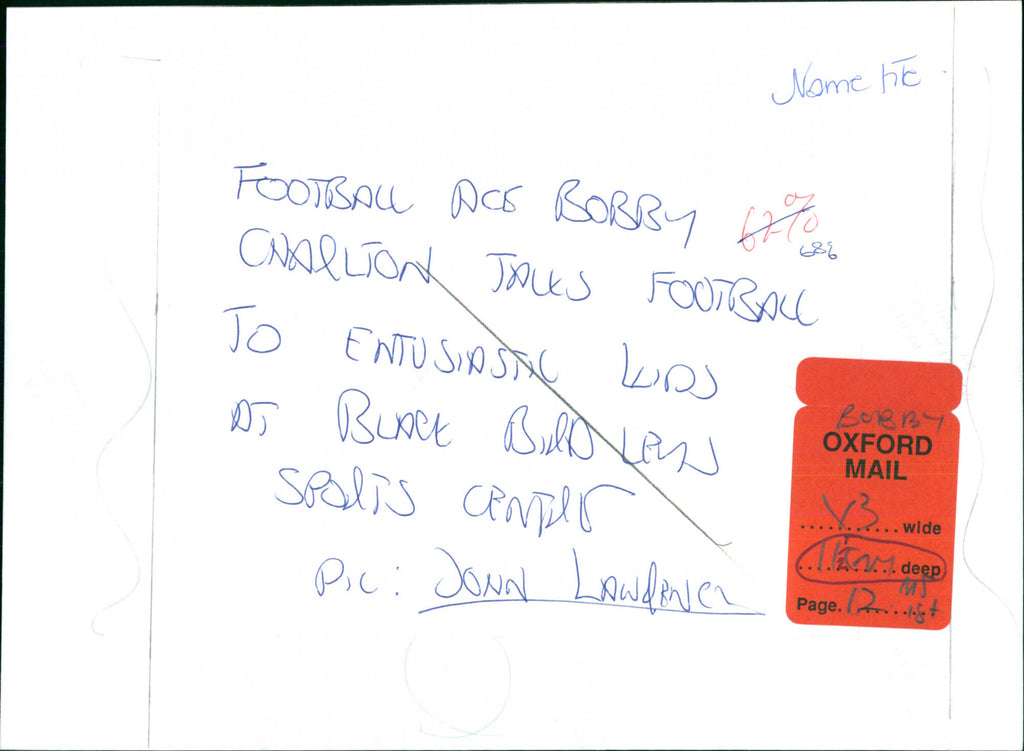 Name file
FOOTBALL ACE BOBBY
62%
68%
CHARLTON TALKS FOOTBALL
TO ENTUSIASTIC KIDS
AT BLACK BIRD LEYS
SPORTS CENTRE
PIC: JOHN LAWRENCE
BOBBY
OXFORD
MAIL
V3 wide
deep
Page. 12
1st